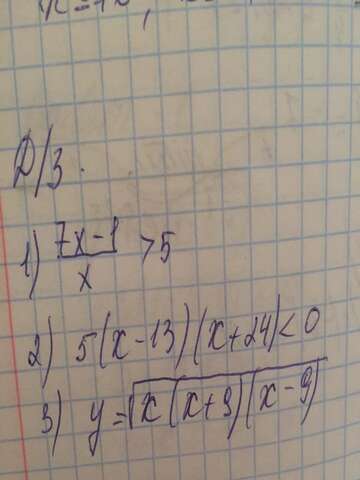 Д/З.
1) (7x-1)/x > 5
2) 5(x-13)(x+24)<0
3) y=√(x(x+9)(x-9))